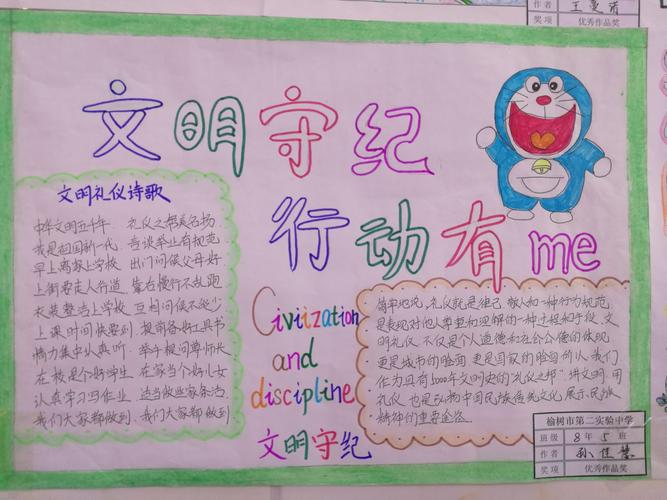 作者 王曼
奖项 优秀作品奖
文明守纪
行动有me
文明礼仪诗歌
中华文明五千年 礼仪之邦美名扬
我是祖国新一代 言谈举止有规范
早上离家上学校 出门问候父母好
上街要走人行道 靠右慢行不乱跑
衣装整洁上学校 互相问候不能少
上课时间快要到 提前备好工具书
精力集中认真听 举手提问尊师长
在校是个好学生 在家当个好儿女
认真学习写作业 适当做些家务活
我们大家都做到 我们大家都做到
Civiization
and
discipline
文明守纪
简单地说,礼仪就是律己、敬人的一种行为规范,
是表现对他人尊重和理解的一种过程和手段。文
明礼仪,不仅是个人道德和社会公德的体现,
更是城市的脸面,更是国家的脸面。所以我们
作为具有5000年文明史的"礼仪之邦",讲文明,用
礼仪,也是弘扬中国民族传统文化,展示民族
精神的重要途径。
榆树市第二实验中学
班级 8年5班
作者 孙佳慧
奖项 优秀作品奖